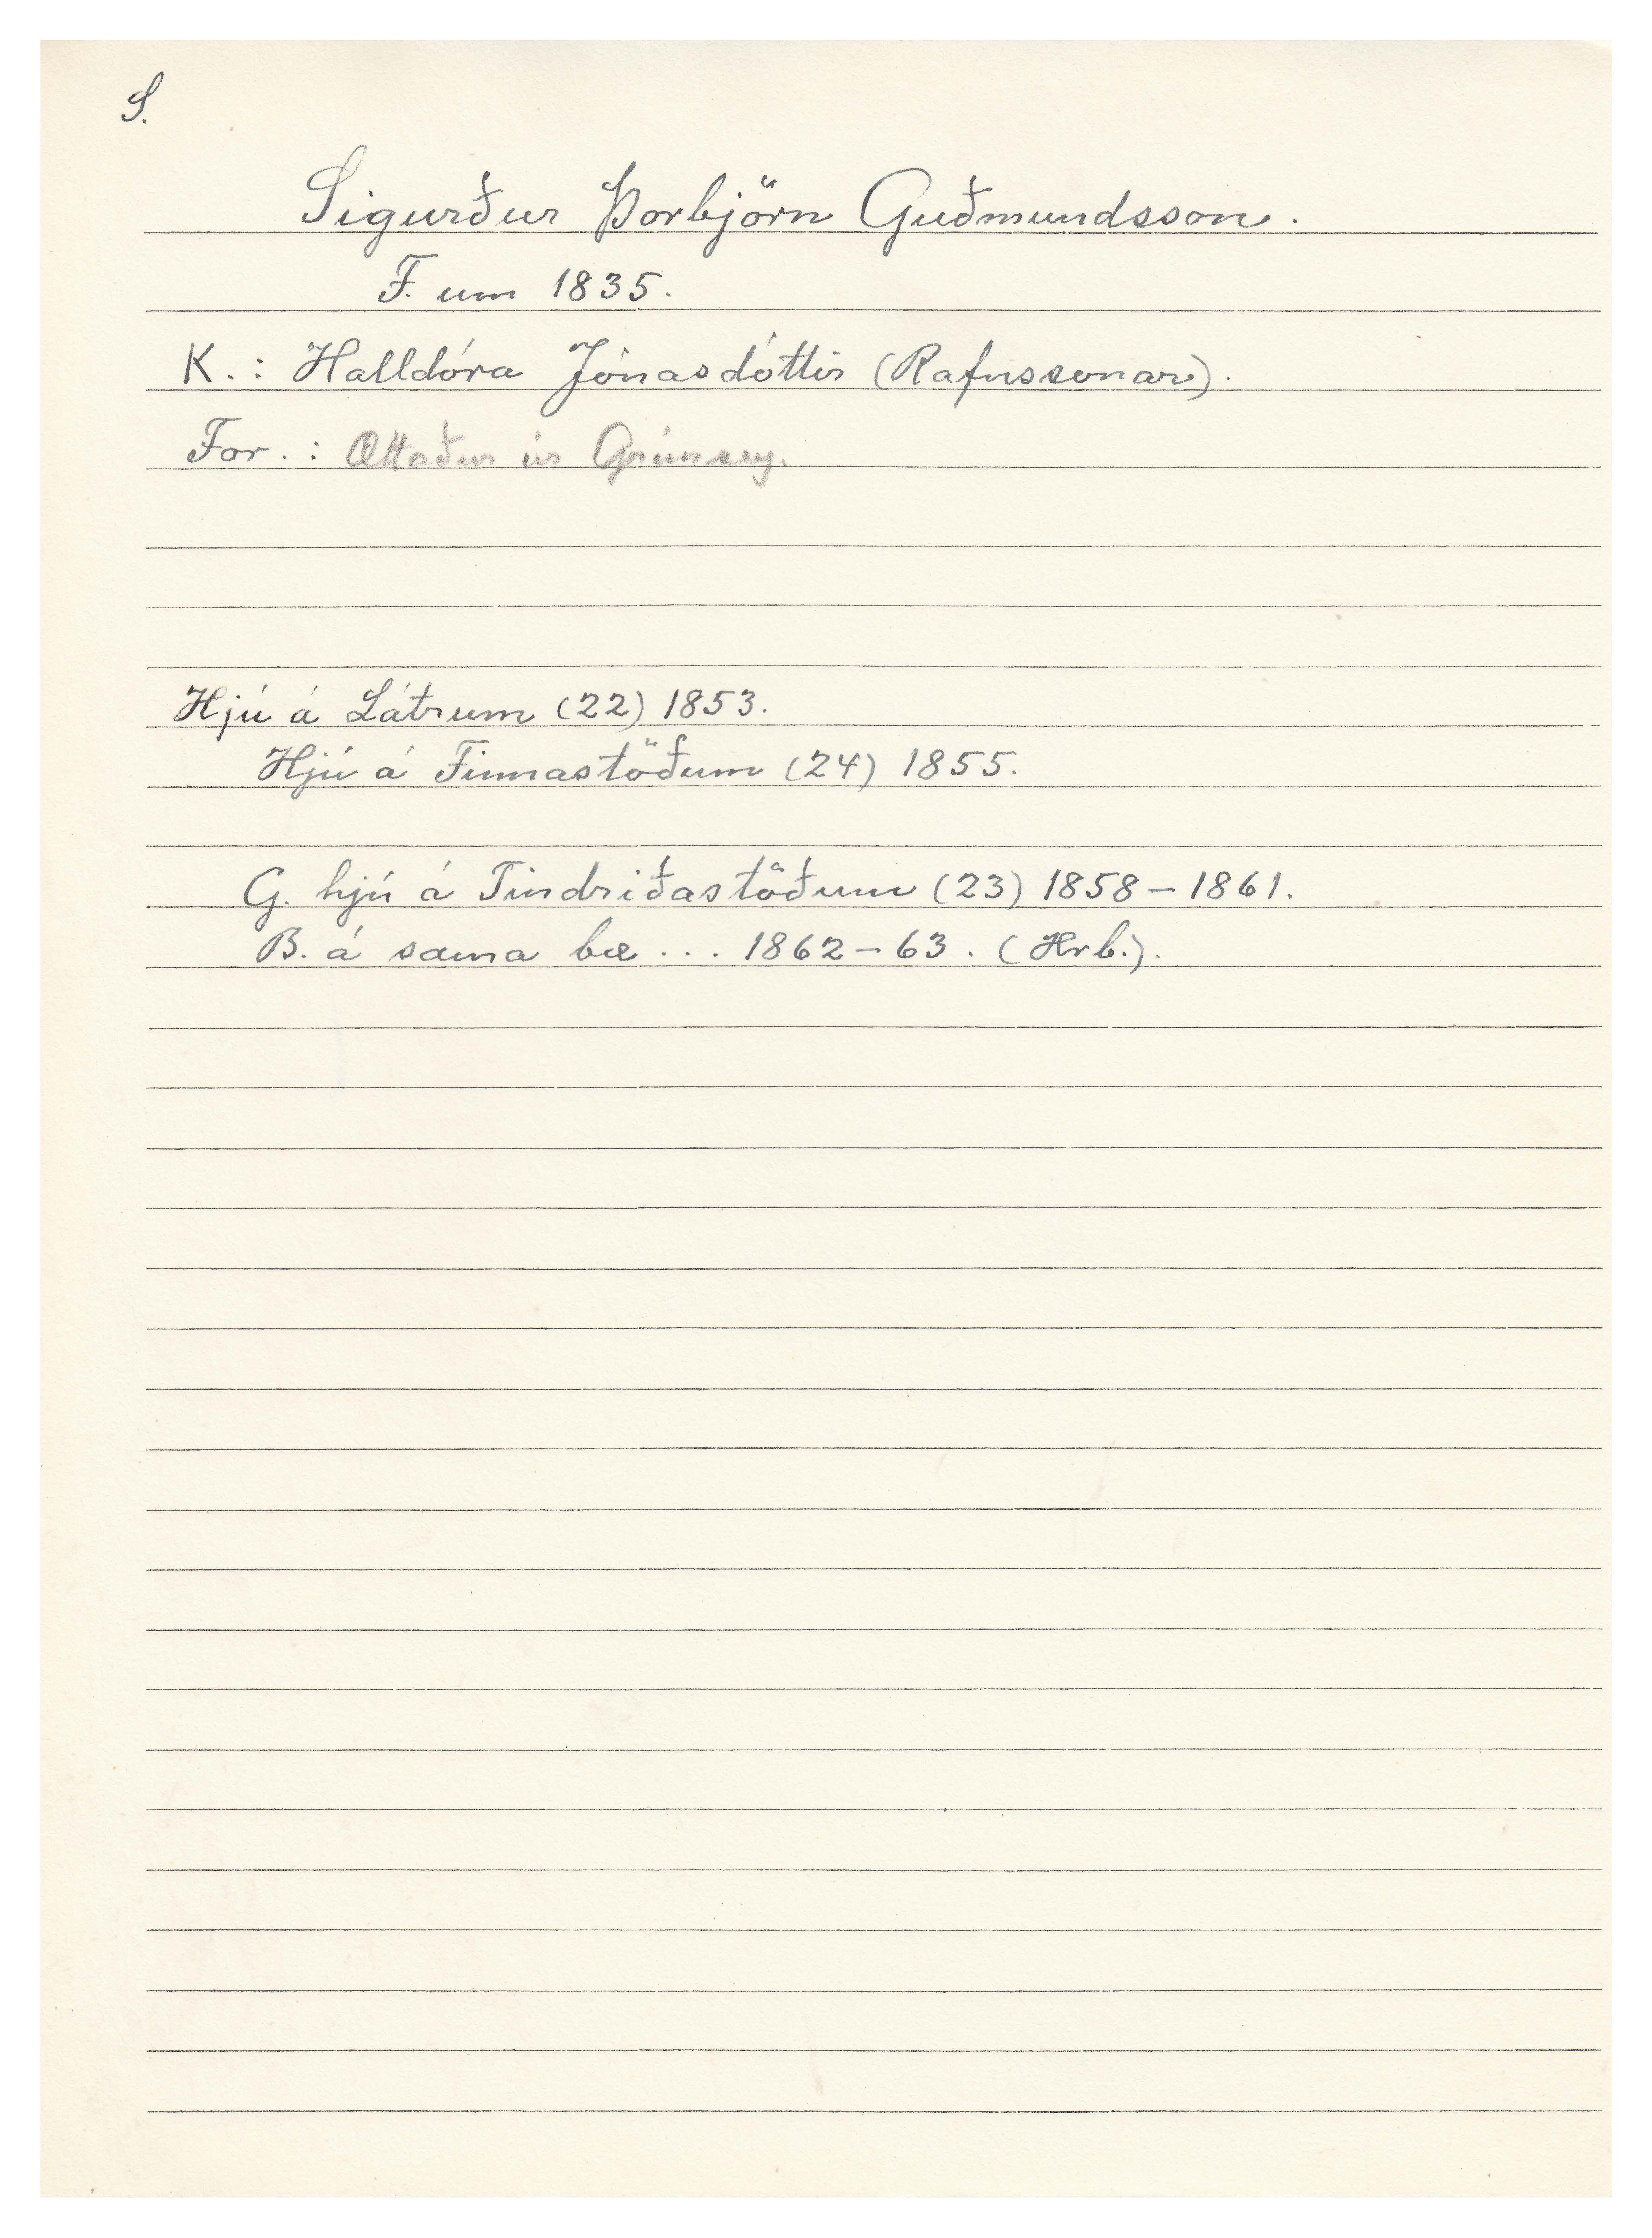 S.
Sigurður Þorbjörn Guðmundsson.
F. um 1835.
K.: Halldóra Jónasdóttir (Rafnssonar).
For.: Ættaður úr Grímsey.
Hjú á Látrum (22) 1853.
Hjú á Finnastöðum (24) 1855.
G. hjú á Tindriðastöðum (23) 1858-1861.
B. á sama bæ ... 1862-63. (Hrb.).